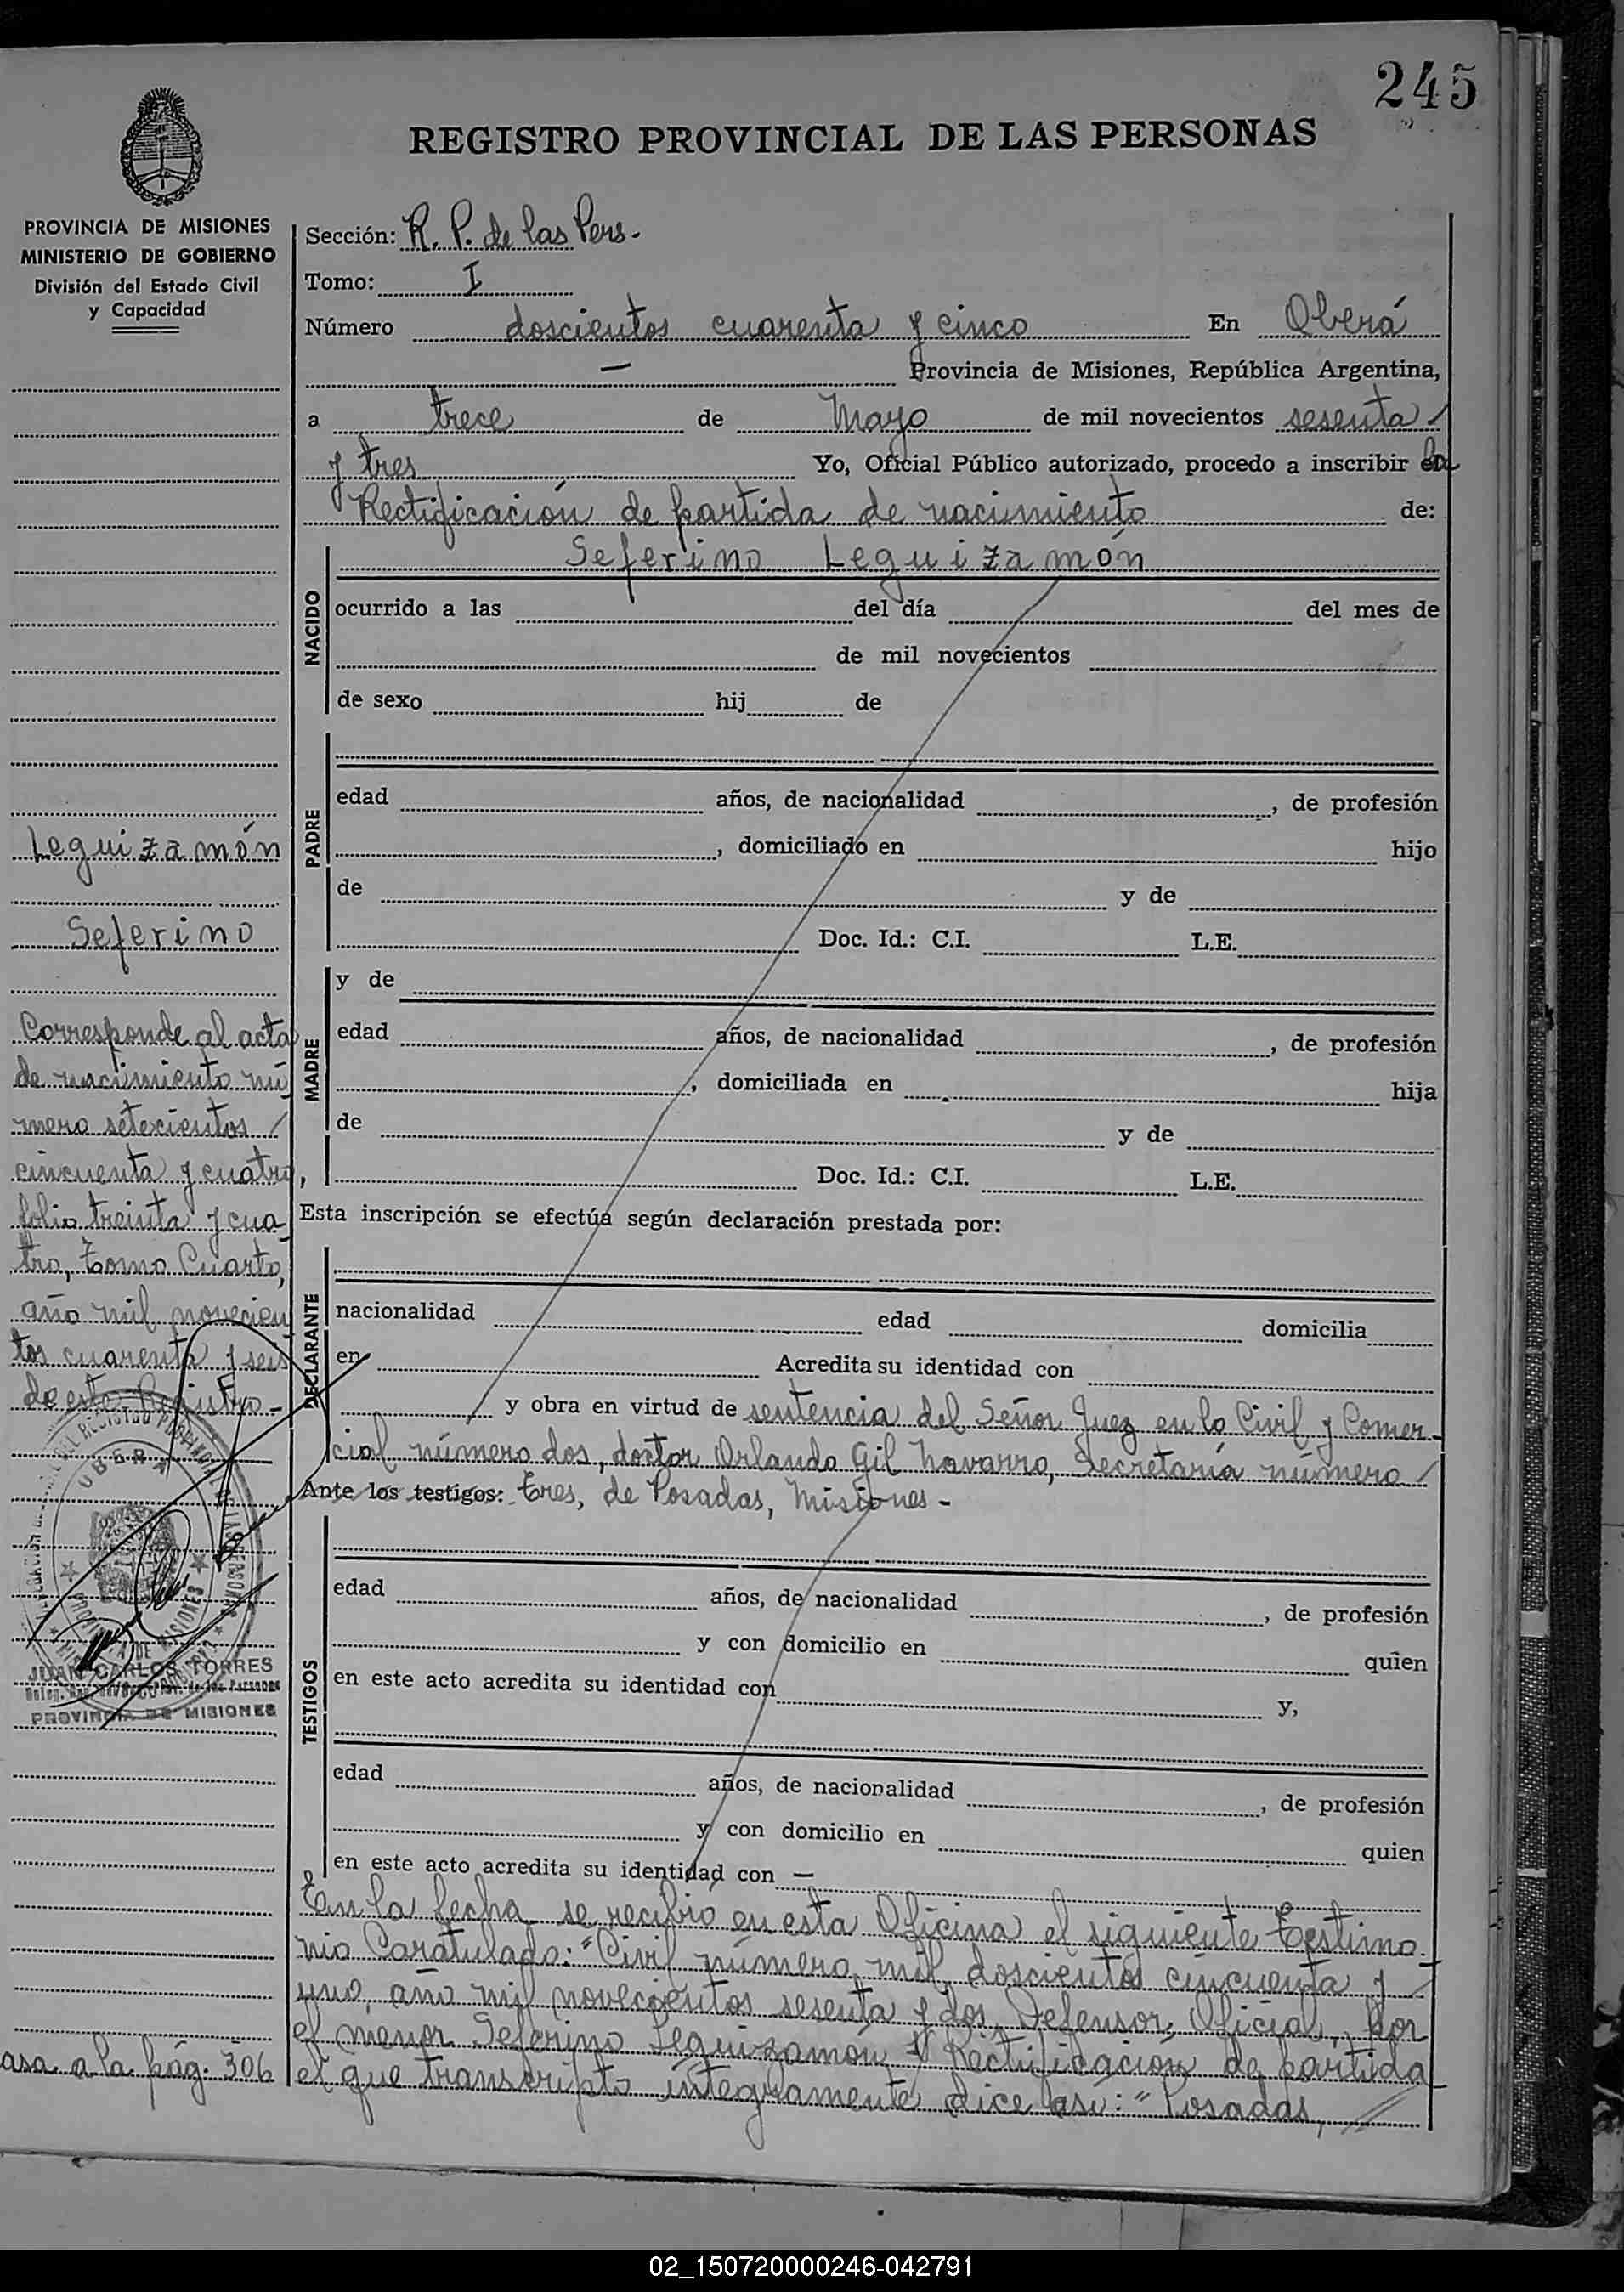 245
REGISTRO PROVINCIAL DE LAS PERSONAS
PROVINCIA DE MISIONES
MINISTERIO DE GOBIERNO
División del Estado Civil
y Capacidad
Leguizamón
Seferino
Corresponde al acta
de nacimiento nú
mero setecientos /
cincuenta y cuatro,
folio treinta y cua
tro, Tomo Cuarto,
año mil novecien
tos cuarenta y seis
de este Registro.-
OBERA
PROVINCIA DE MISIONES
JUAN CARLOS TORRES
PROVINCIA DE MISIONES
asa a la pág. 306
Sección: R. P. de las Pers.
Tomo: I
Número doscientos cuarenta y cinco En Oberá
— Provincia de Misiones, República Argentina,
a trece de Mayo de mil novecientos sesenta /
y tres Yo, Oficial Público autorizado, procedo a inscribir la
Rectificación de partida de nacimiento de:
Seferino Leguizamón
NACIDO
ocurrido a las del día del mes de
de mil novecientos
de sexo hij de
PADRE
edad años, de nacionalidad , de profesión
, domiciliado en hijo
de y de
Doc. Id.: C.I. L.E.
MADRE
y de
edad años, de nacionalidad , de profesión
, domiciliada en hija
de y de
Doc. Id.: C.I. L.E.
Esta inscripción se efectúa según declaración prestada por:
DECLARANTE
nacionalidad edad domicilia
en Acredita su identidad con
y obra en virtud de sentencia del Señor Juez en lo Civil y Comer-
cial número dos, doctor Orlando Gil Navarro, Secretaría número /
Ante los testigos: Tres, de Posadas, Misiones -
TESTIGOS
edad años, de nacionalidad , de profesión
y con domicilio en quien
en este acto acredita su identidad con y,
edad años, de nacionalidad , de profesión
y con domicilio en quien
en este acto acredita su identidad con —
En la fecha se recibió en esta Oficina el siguiente Testimo-
nio Caratulado: "Civil número mil doscientos cincuenta y /
uno, año mil novecientos sesenta y dos, Defensor Oficial, por
el menor Seferino Leguizamón s/ Rectificación de partida
el que transcripto íntegramente dice así: "Posadas, //
02_150720000246-042791